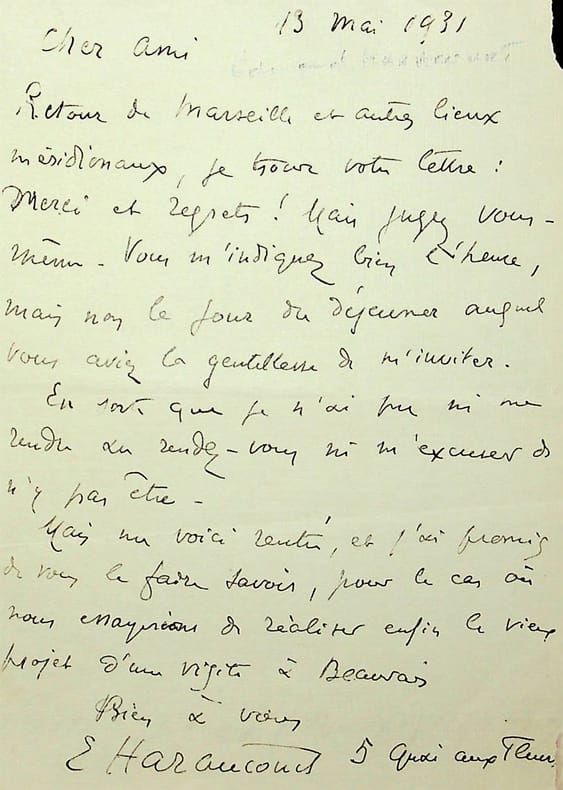 13 Mai 1931
Cher ami
Retour de Marseille et autres lieux
méridionaux, je trouve votre lettre :
Merci et regrets ! Mais jugez vous-
même - Vous m'indiquez bien l'heure,
mais non le jour du déjeuner auquel
vous aviez la gentillesse de m'inviter.
En sorte que je n'ai pu ni me
rendre au rendez-vous ni m'excuser de
n'y pas être -
Mais me voici rentré, et j'ai promis
de vous le faire savoir, pour le cas où
nous essayerions de réaliser enfin le vieux
projet d'une visite à Beauvais
Bien à vous
E Haraucourt 5 Quai aux Fleurs